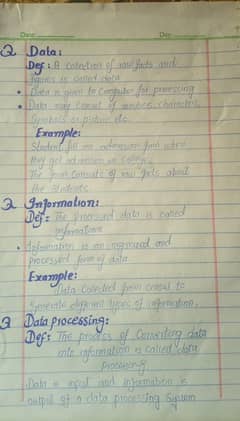 Date: Day:
Q Data:
Def: A collection of raw facts and
figures is called data
• Data is given to computer for processing
• Data may consist of numbers, characters,
symbols or pictures etc.
Example:
Student fill an admission form when
they get admission in college.
The form consists of raw facts about
the students
Q Information:
Def: The processed data is called
information
• Information is an organized and
processed form of data
Example:
Data collected from census to
generate different types of information.
Q Data processing:
Def: The process of converting data
into information is called data
Data is input and information is
output of a data processing system